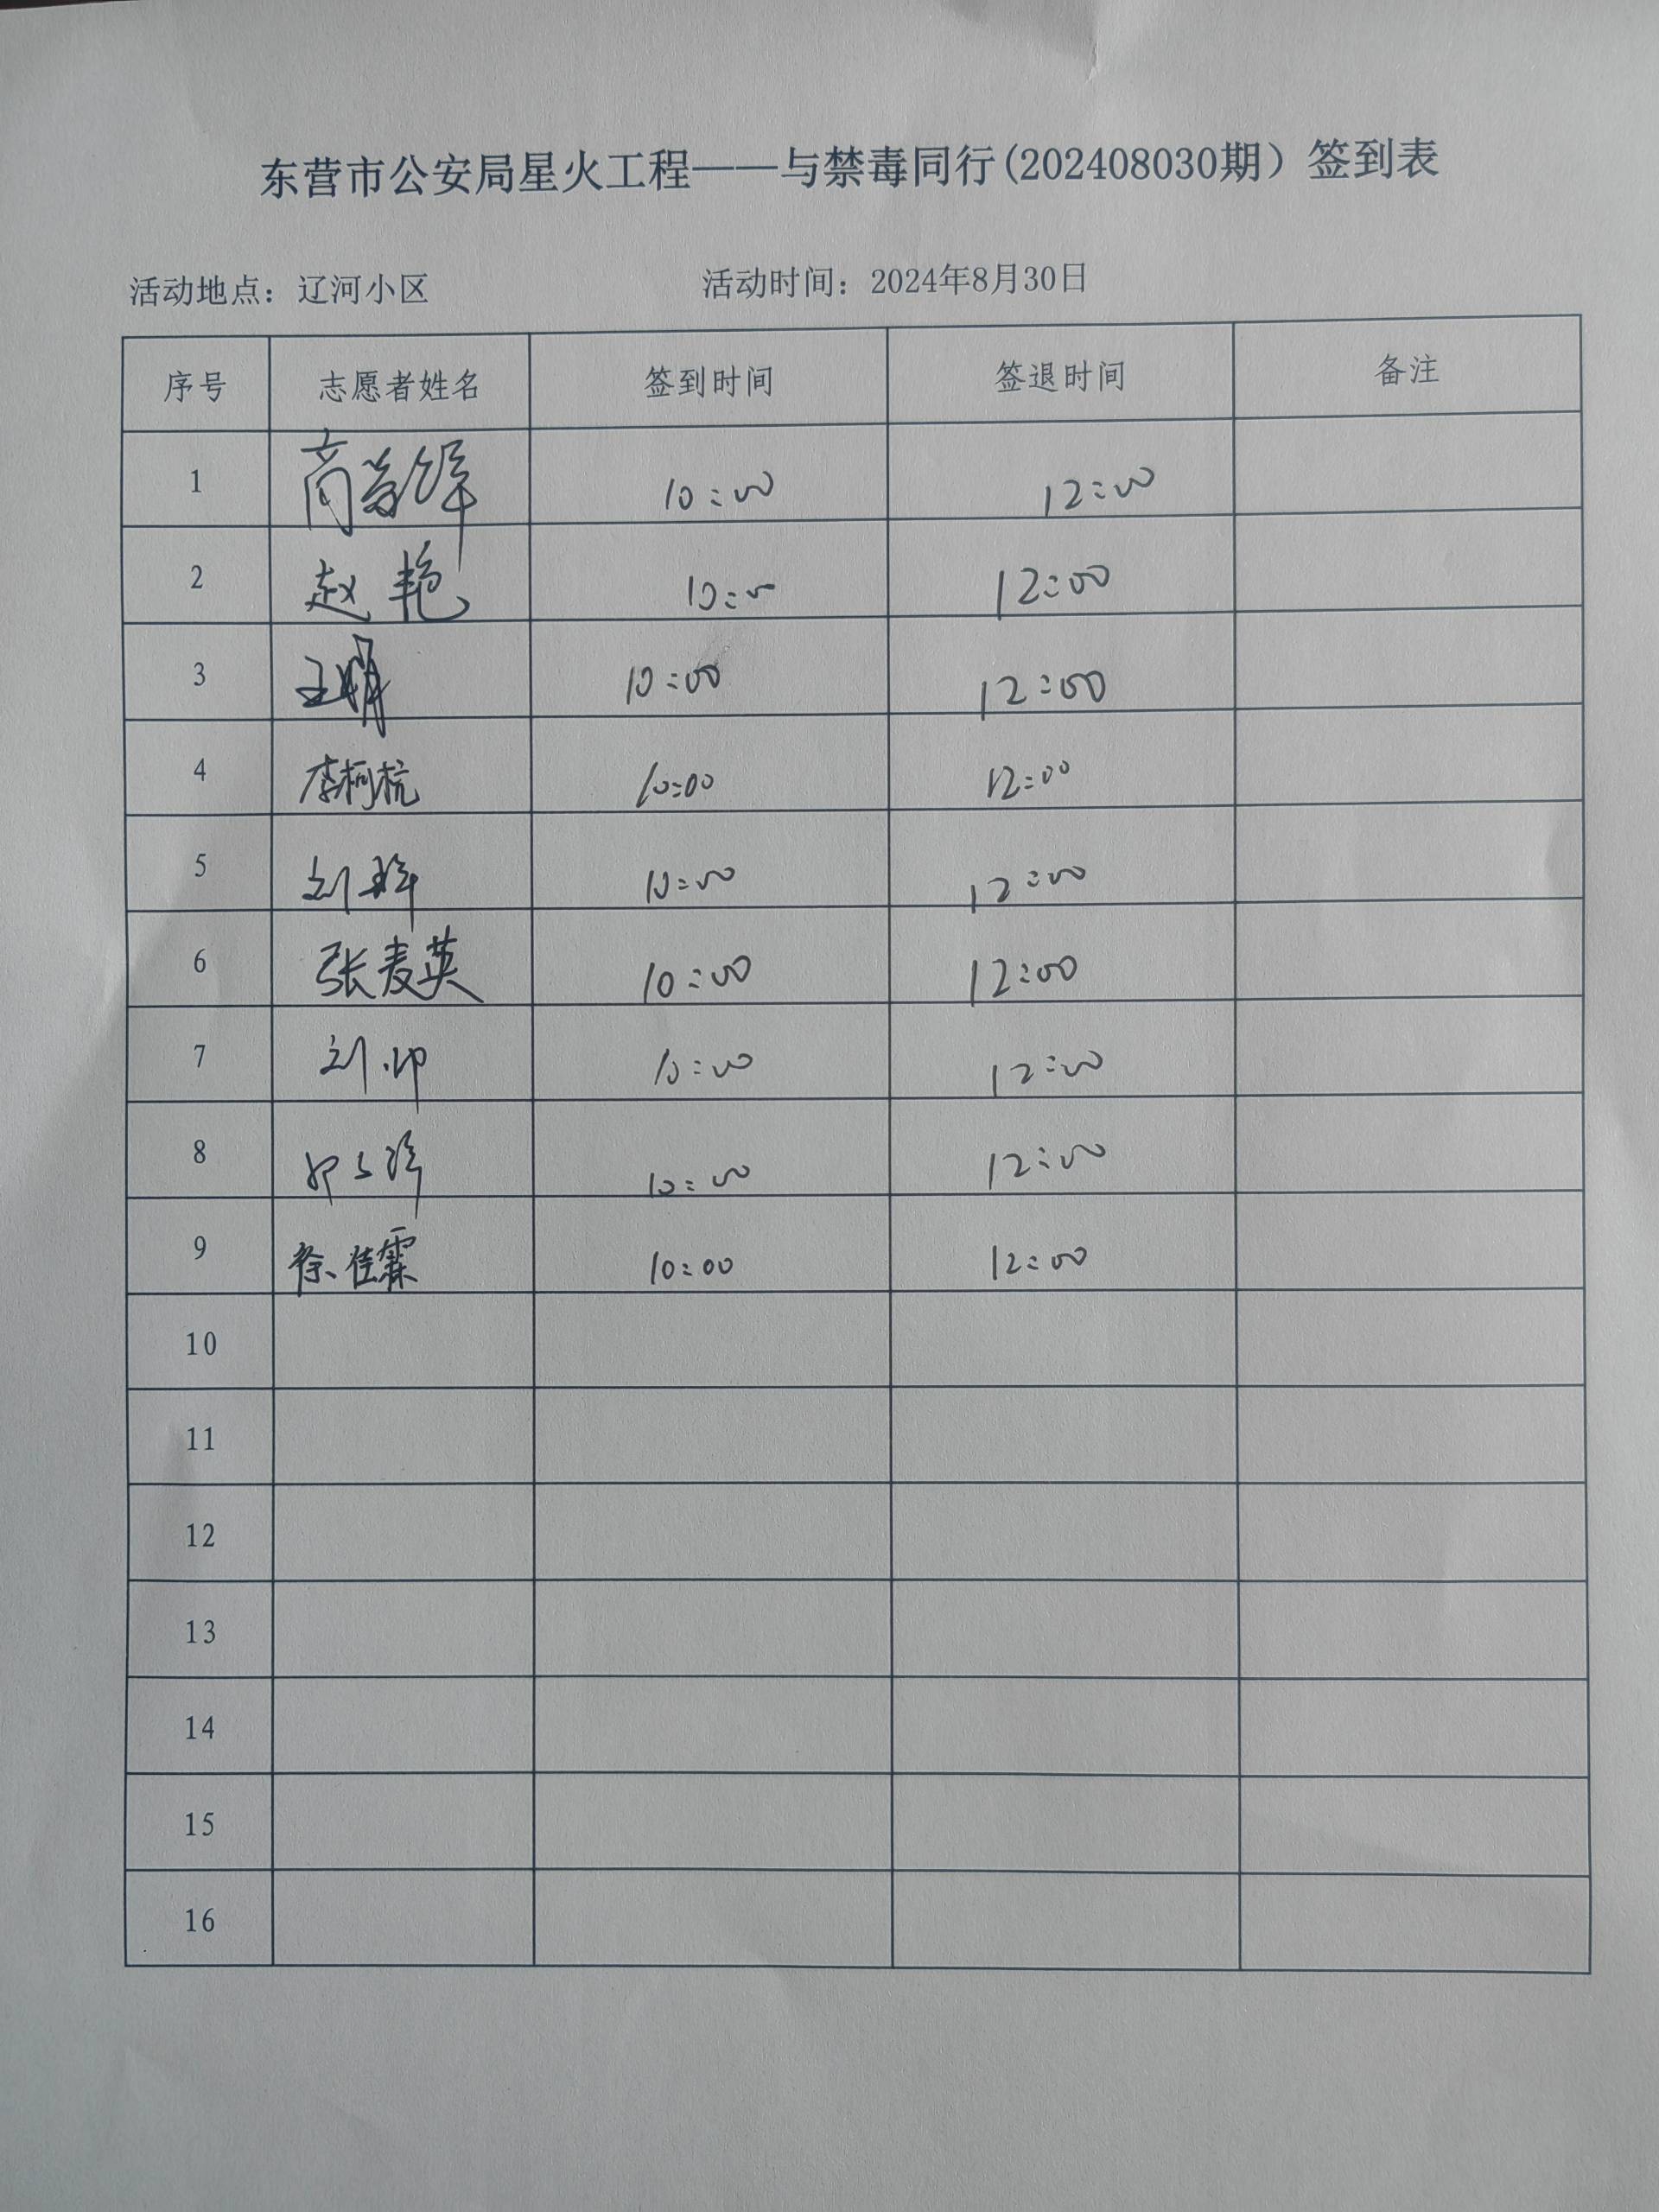 东营市公安局星火工程——与禁毒同行(202408030期）签到表
活动地点：辽河小区 活动时间：2024年8月30日
序号 志愿者姓名 签到时间 签退时间 备注
1 10:00 12:00
2 赵艳 10:00 12:00
3 王娟 10:00 12:00
4 李柯杭 10:00 12:00
5 刘 10:00 12:00
6 张麦英 10:00 12:00
7 刘 10:00 12:00
8 10:00 12:00
9 徐佳霖 10:00 12:00
10
11
12
13
14
15
16